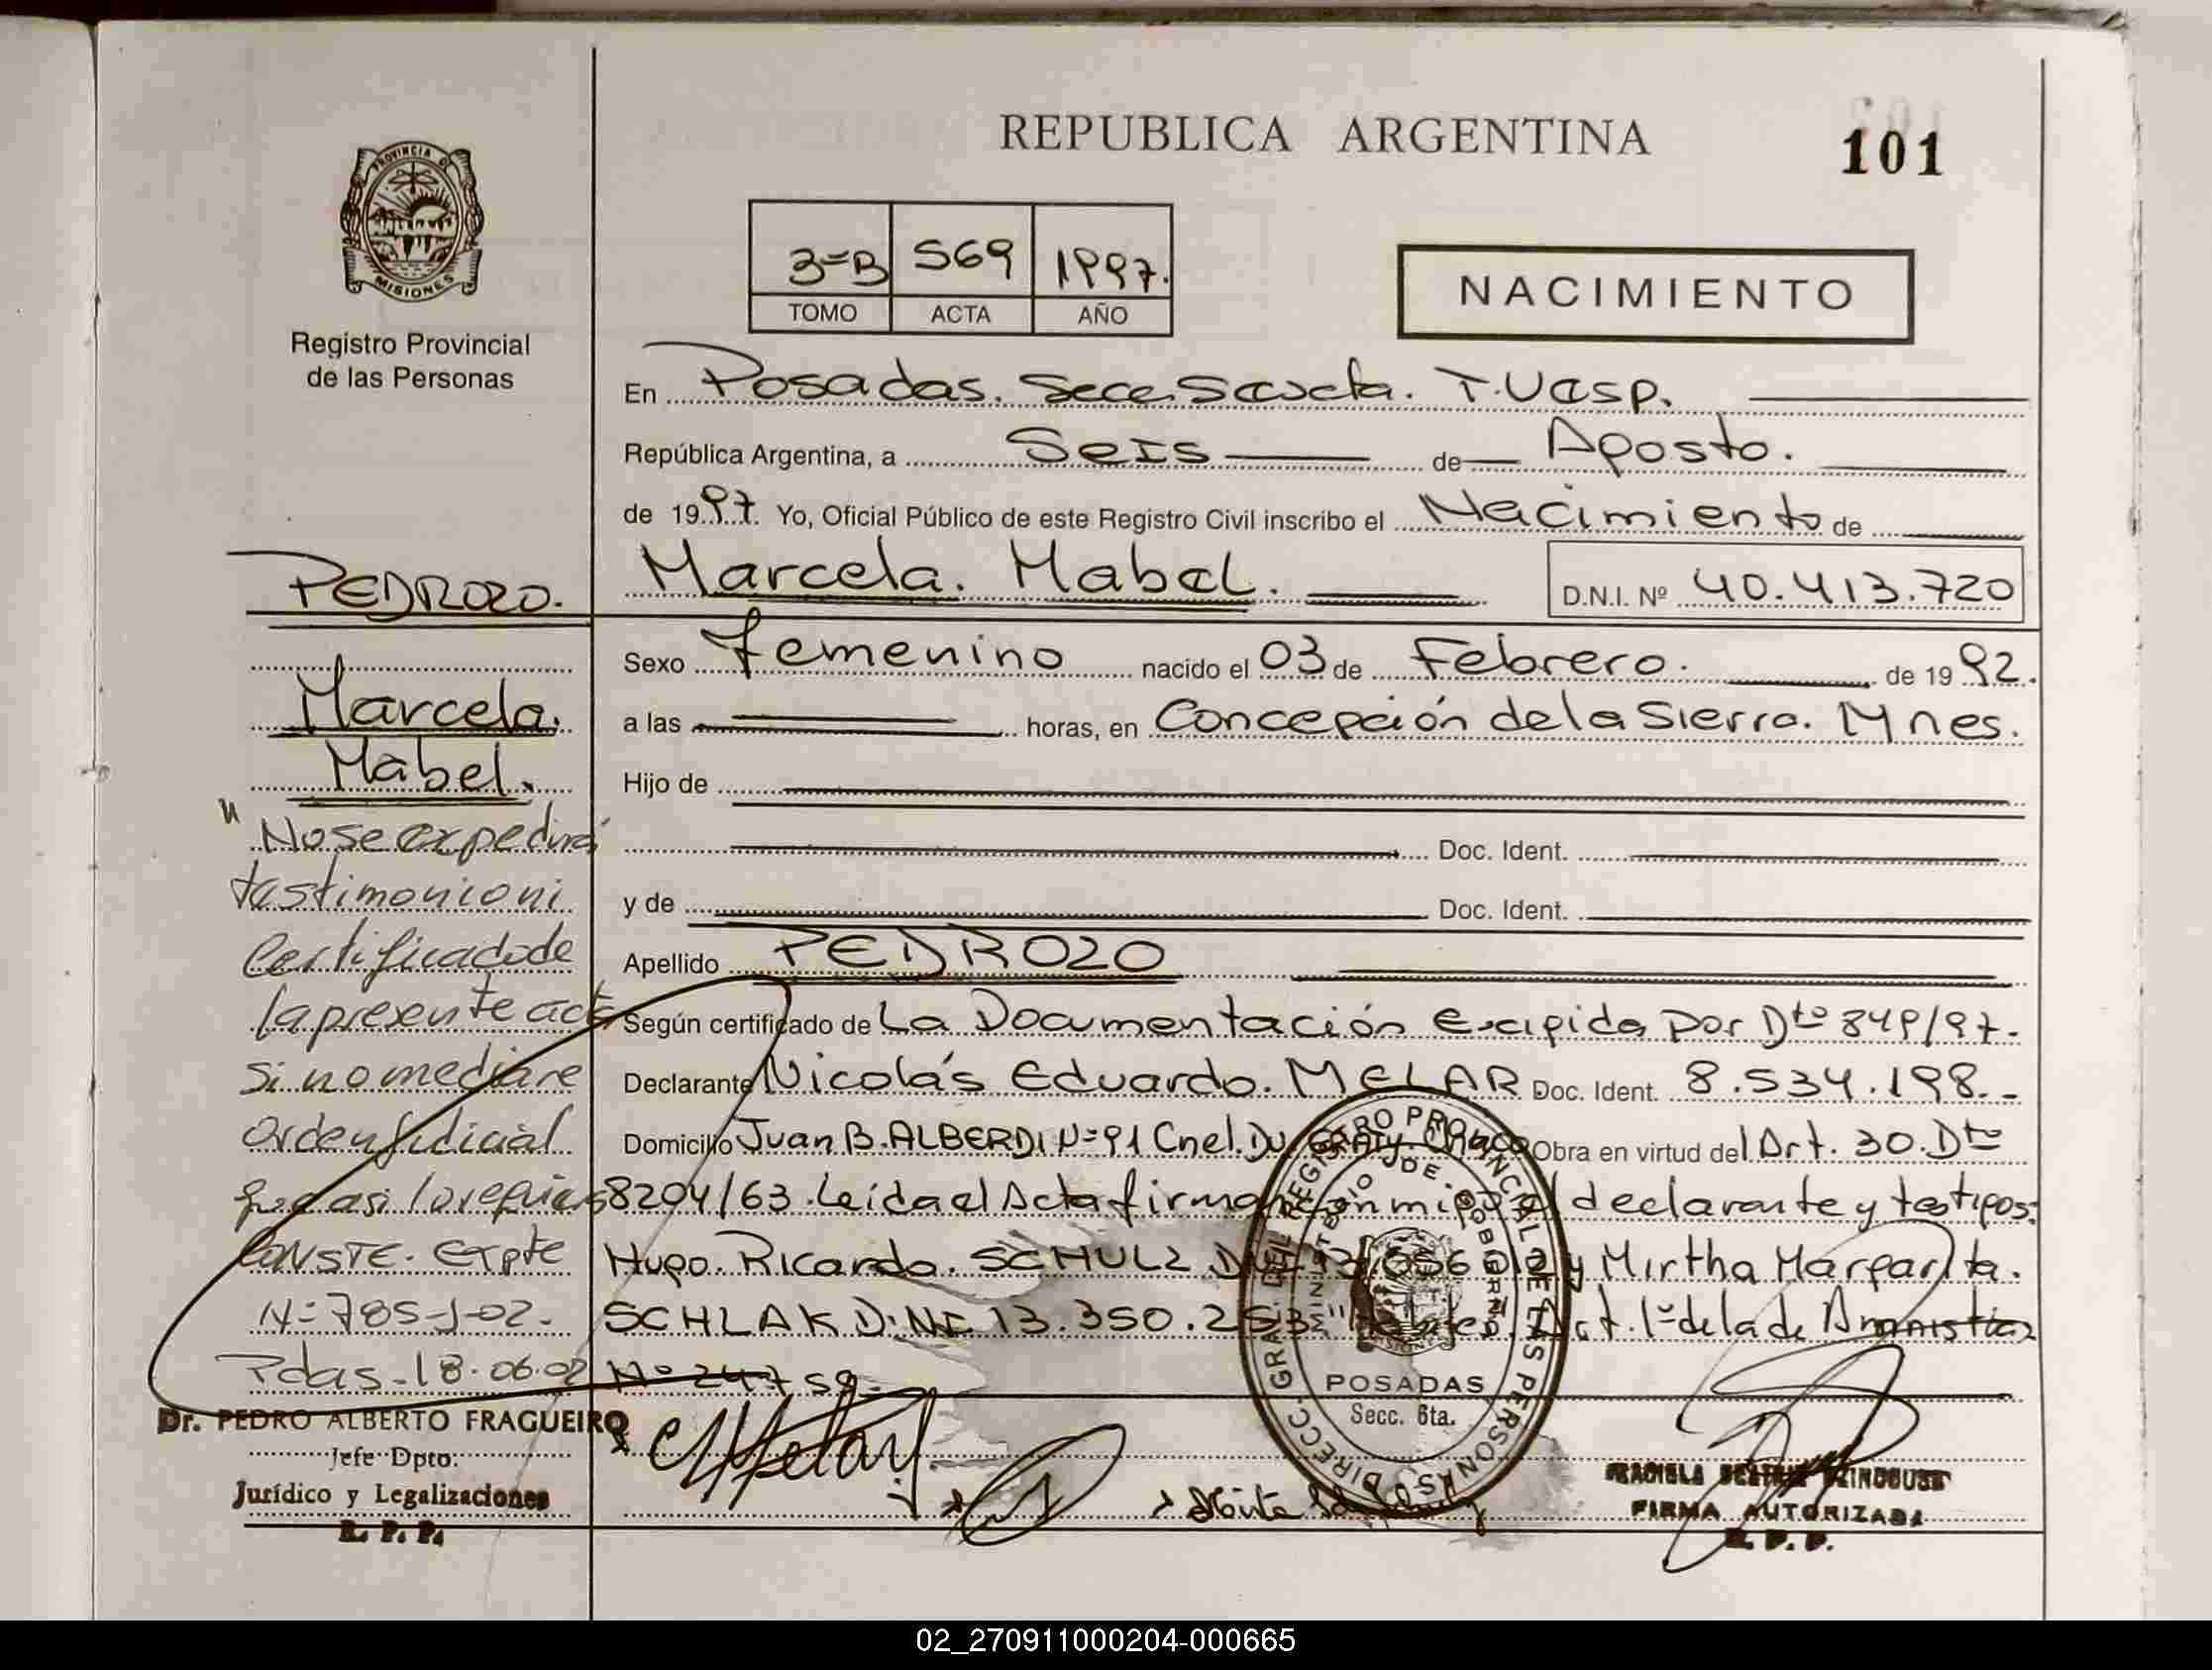 REPUBLICA ARGENTINA
101
PROVINCIA D
MISIONES
Registro Provincial
de las Personas
3=B 569 1997.
TOMO ACTA AÑO
NACIMIENTO
En Posadas. Secc. Sexta.
República Argentina, a Seis de Agosto.
de 1997. Yo, Oficial Público de este Registro Civil inscribo el Nacimiento de
Marcela. Mabel. D.N.I. Nº 40.413.720
Sexo Femenino nacido el 03 de Febrero. de 1992.
a las horas, en Concepción de la Sierra. Mnes.
Hijo de
Doc. Ident.
y de Doc. Ident.
Apellido PEDROZO
Según certificado de La Documentación Exigida por Dto 849/97.-
Declarante Nicolás Eduardo. MELAR Doc. Ident. 8.534.198.-
Domicilio Juan B. ALBERDI Nº 91 Cnel. Du Graty. Chaco Obra en virtud del Art. 30. Dto
8204/63. Leida el Acta firman con migo el declarante y testigos:
Hugo. Ricardo. SCHULZ y Mirtha Margarita.
SCHLAK D.NI 13.350.253 Art. 1º de la de Amnistia
Nº 24759.
PEDROZO.
Marcela.
Mabel.
"No se expedirá
testimonio ni
Certificado de
la presente acta
Si no mediare
Orden Judicial
que asi lo requiera
CONSTE. Expte
Nº 785-J-02.
Pdas. 18.06.02
Dr. PEDRO ALBERTO FRAGUEIRO
Jefe Dpto.
Jurídico y Legalizaciones
R. P. P.
DIRECC. GRAL. DEL REGISTRO PROVINCIAL DE LAS PERSONAS
MINISTERIO DE GOBIERNO
POSADAS
Secc. 6ta.
FIRMA AUTORIZADA
R. P. P.
02_270911000204-000665